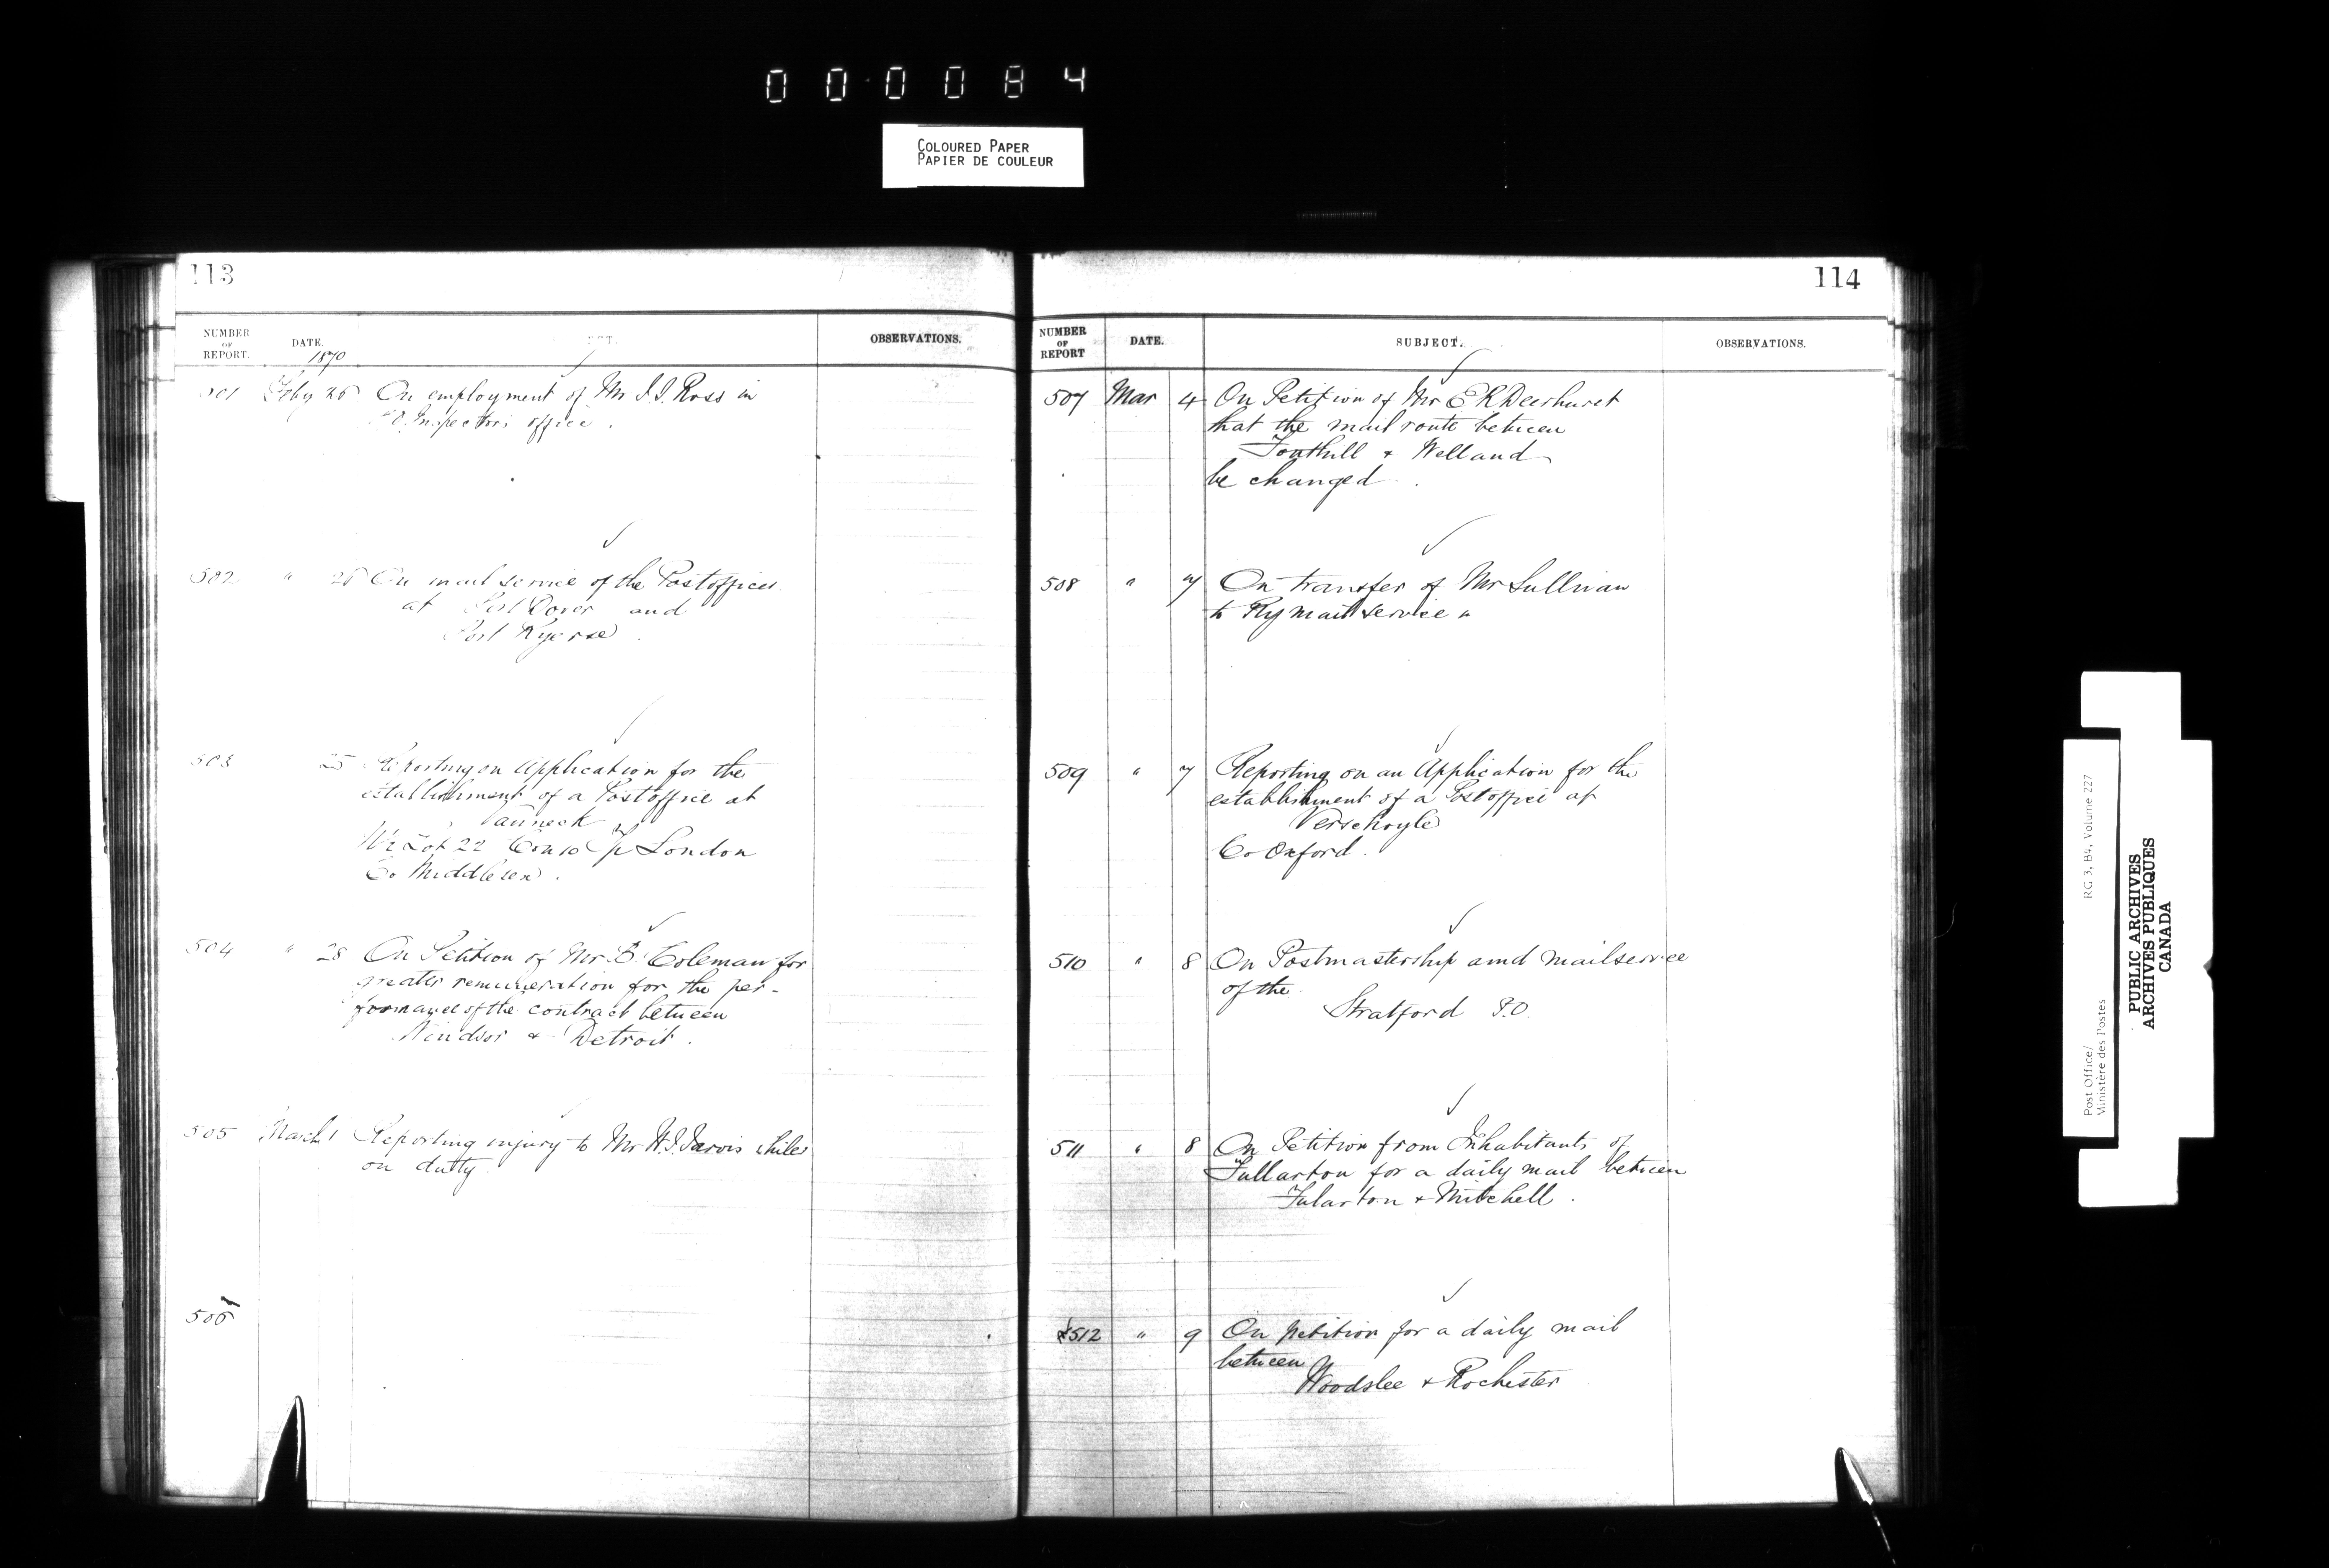 000084
COLOURED PAPER
PAPIER DE COULEUR
113
NUMBER OF REPORT. DATE. OBSERVATIONS.
1870
501 Feby 26 On employment of Mr J.J. Ross in
P.O. Inspectors office.
502 " 26 On mail service of the Postoffices
at Port Dover and
Port Ryerse.
503 25 Reporting on Application for the
establishment of a Postoffice at
Vanneck
W½ Lot 22 Con 10 Tp London
Co Middlesex.
504 " 28 On Petition of Mr B. Coleman for
greater remuneration for the per-
formance of the contract between
Windsor & Detroit.
505 March 1 Reporting injury to Mr W.J. Jarvis while
on duty.
506
114
NUMBER OF REPORT DATE. SUBJECT. OBSERVATIONS.
507 Mar 4 On Petition of Mr E R Deerhurst
that the mail route between
Fonthill & Welland
be changed.
508 " 7 On transfer of Mr Sullivan
to Ry mail service "
509 " 7 Reporting on an Application for the
establishment of a Postoffice at
Verschoyle
Co Oxford.
510 " 8 On Postmastership and mailservice
of the
Stratford P.O.
511 " 8 On Petition from Inhabitants of
Fullarton for a daily mail between
Fularton & Mitchell.
512 " 9 On petition for a daily mail
between
Woodslee & Rochester
Post Office/ RG 3, B4, Volume 227
Ministère des Postes
PUBLIC ARCHIVES
ARCHIVES PUBLIQUES
CANADA